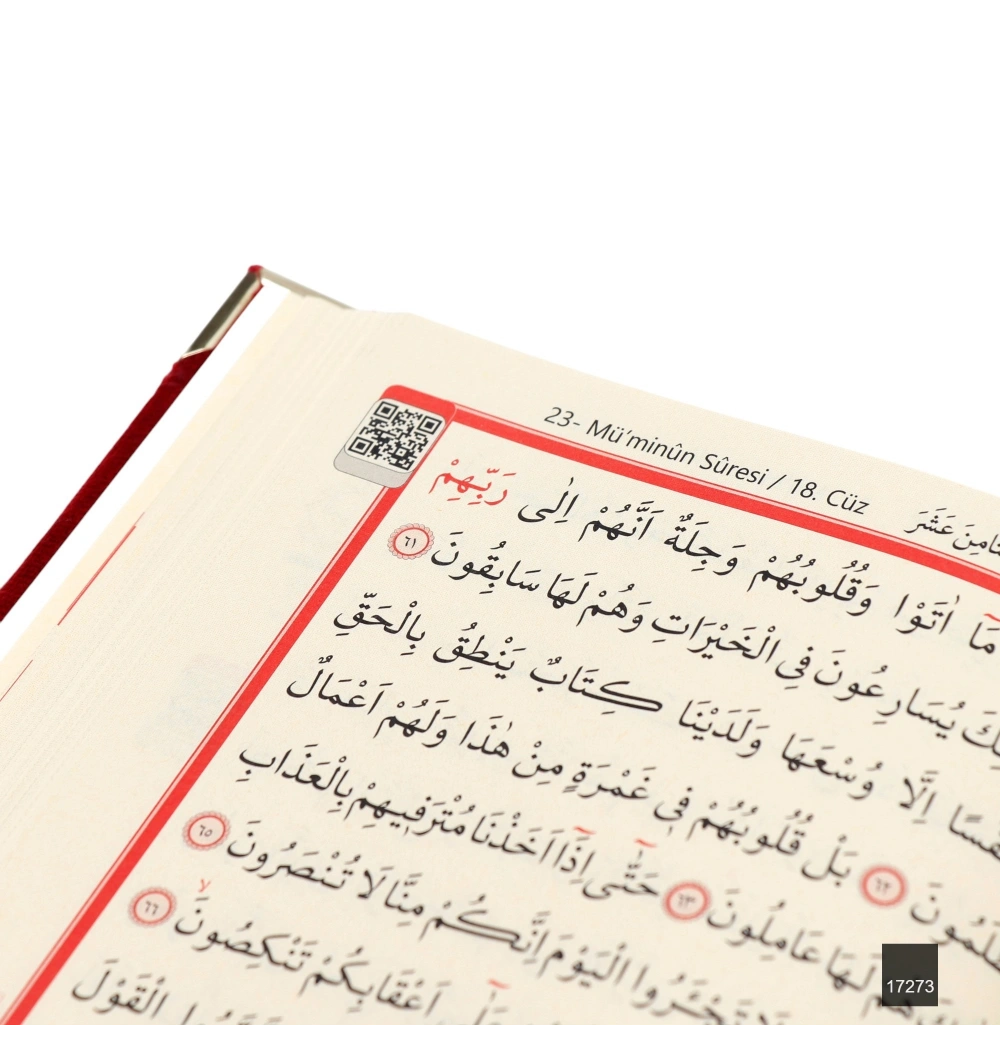 23- Mü'minûn Sûresi / 18. Cüz
مَٓا اٰتَوْا وَقُلُوبُهُمْ وَجِلَةٌ اَنَّهُمْ اِلٰى رَبِّهِمْ
يُسَارِعُونَ فِي الْخَيْرَاتِ وَهُمْ لَهَا سَابِقُونَ ٦١
اِلَّا وُسْعَهَا وَلَدَيْنَا كِتَابٌ يَنْطِقُ بِالْحَقِّ
٦٢ بَلْ قُلُوبُهُمْ فِي غَمْرَةٍ مِنْ هٰذَا وَلَهُمْ اَعْمَالٌ
لَهَا عَامِلُونَ ٦٣ حَتّٰٓى اِذَٓا اَخَذْنَا مُتْرَفِيهِمْ بِالْعَذَابِ
تَجْـَٔرُوا الْيَوْمَ اِنَّكُمْ مِنَّا لَا تُنْصَرُونَ ٦٥
اَعْقَابِكُمْ تَنْكِصُونَ ۙ ٦٦
الْقَوْلَ
17273